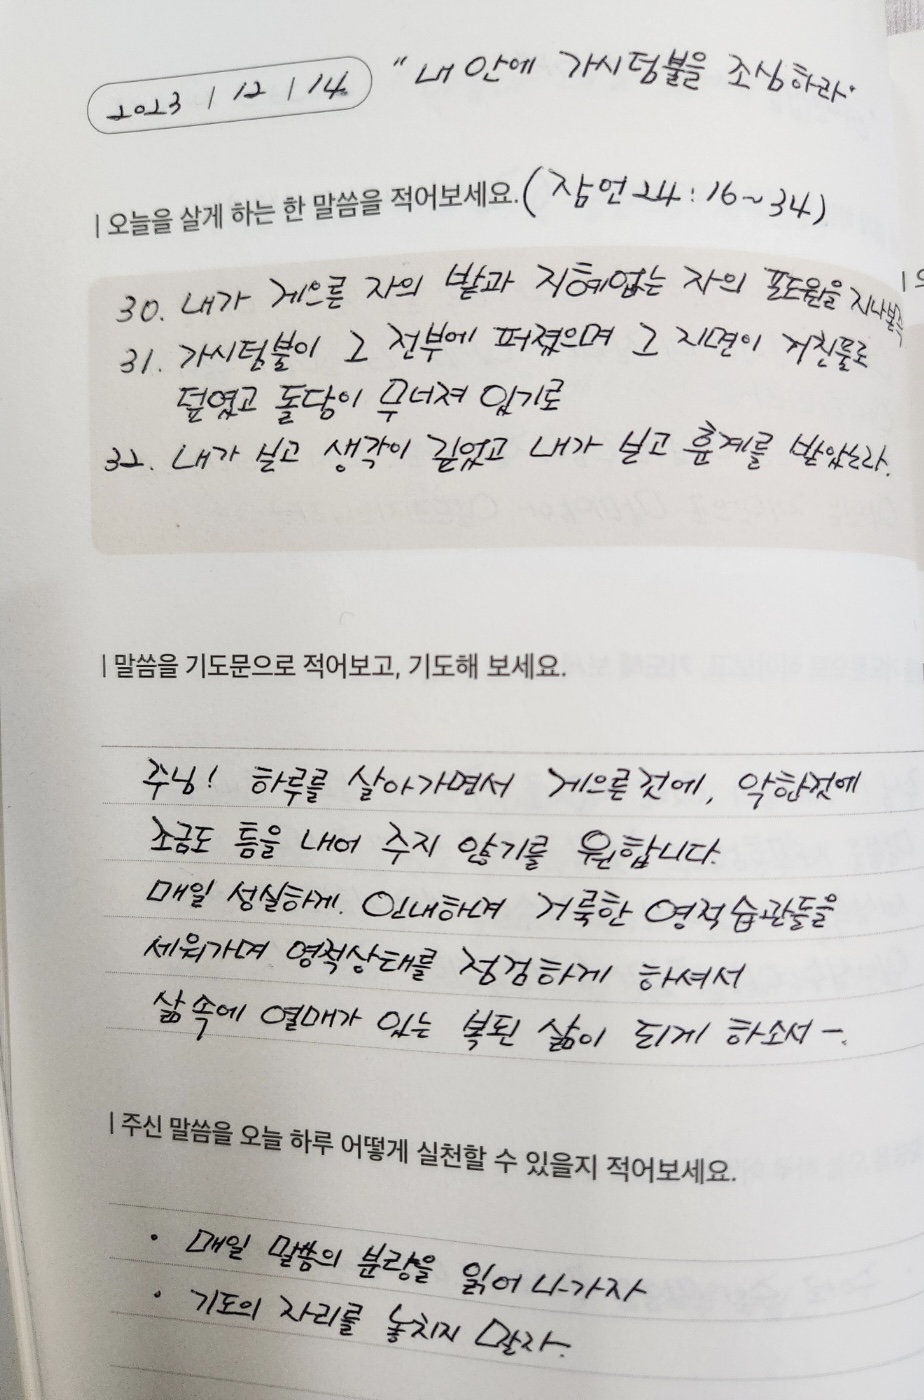 2023 / 12 / 14 "내 안에 가시덤불을 조심하라"
| 오늘을 살게 하는 한 말씀을 적어보세요. (잠언 24:16~34)
30. 내가 게으른 자의 밭과 지혜없는 자의 포도원을 지나본즉
31. 가시덤불이 그 전부에 퍼졌으며 그 지면이 거친풀로
덮였고 돌담이 무너져 있기로
32. 내가 보고 생각이 깊었고 내가 보고 훈계를 받았노라.
| 말씀을 기도문으로 적어보고, 기도해 보세요.
주님! 하루를 살아가면서 게으른것에, 악한것에
조금도 틈을 내어 주지 않기를 원합니다.
매일 성실하게. 인내하며 거룩한 영적습관들을
세워가며 영적상태를 점검하게 하셔서
삶속에 열매가 있는 복된 삶이 되게 하소서 -.
| 주신 말씀을 오늘 하루 어떻게 실천할 수 있을지 적어보세요.
• 매일 말씀의 분량을 읽어 나가자
• 기도의 자리를 놓치지 말자.